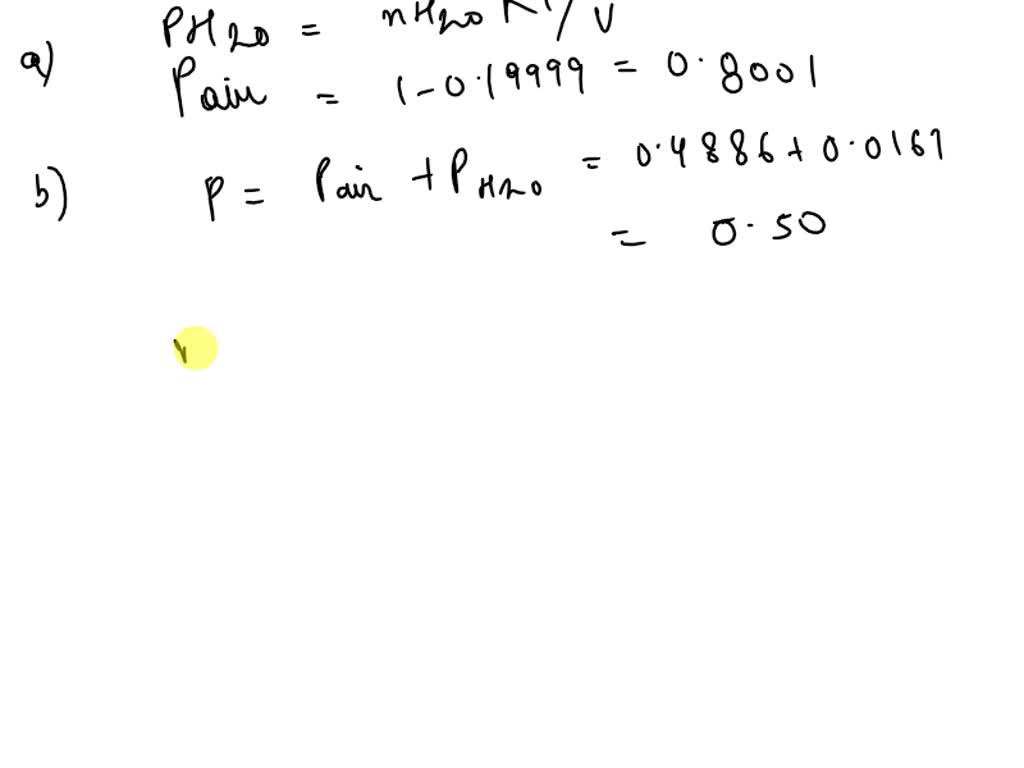 a) PH20 = nH20 RT/V
Pair = 1-0.19999 = 0.8001
b) P = Pair + PH20 = 0.4886 + 0.0167
= 0.50